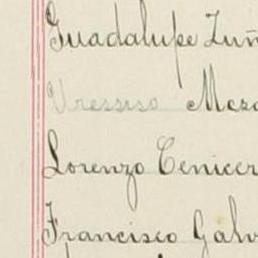 Guadalupe Zuñ
Mesa
Lorenzo Cenicer
Francisco Galv